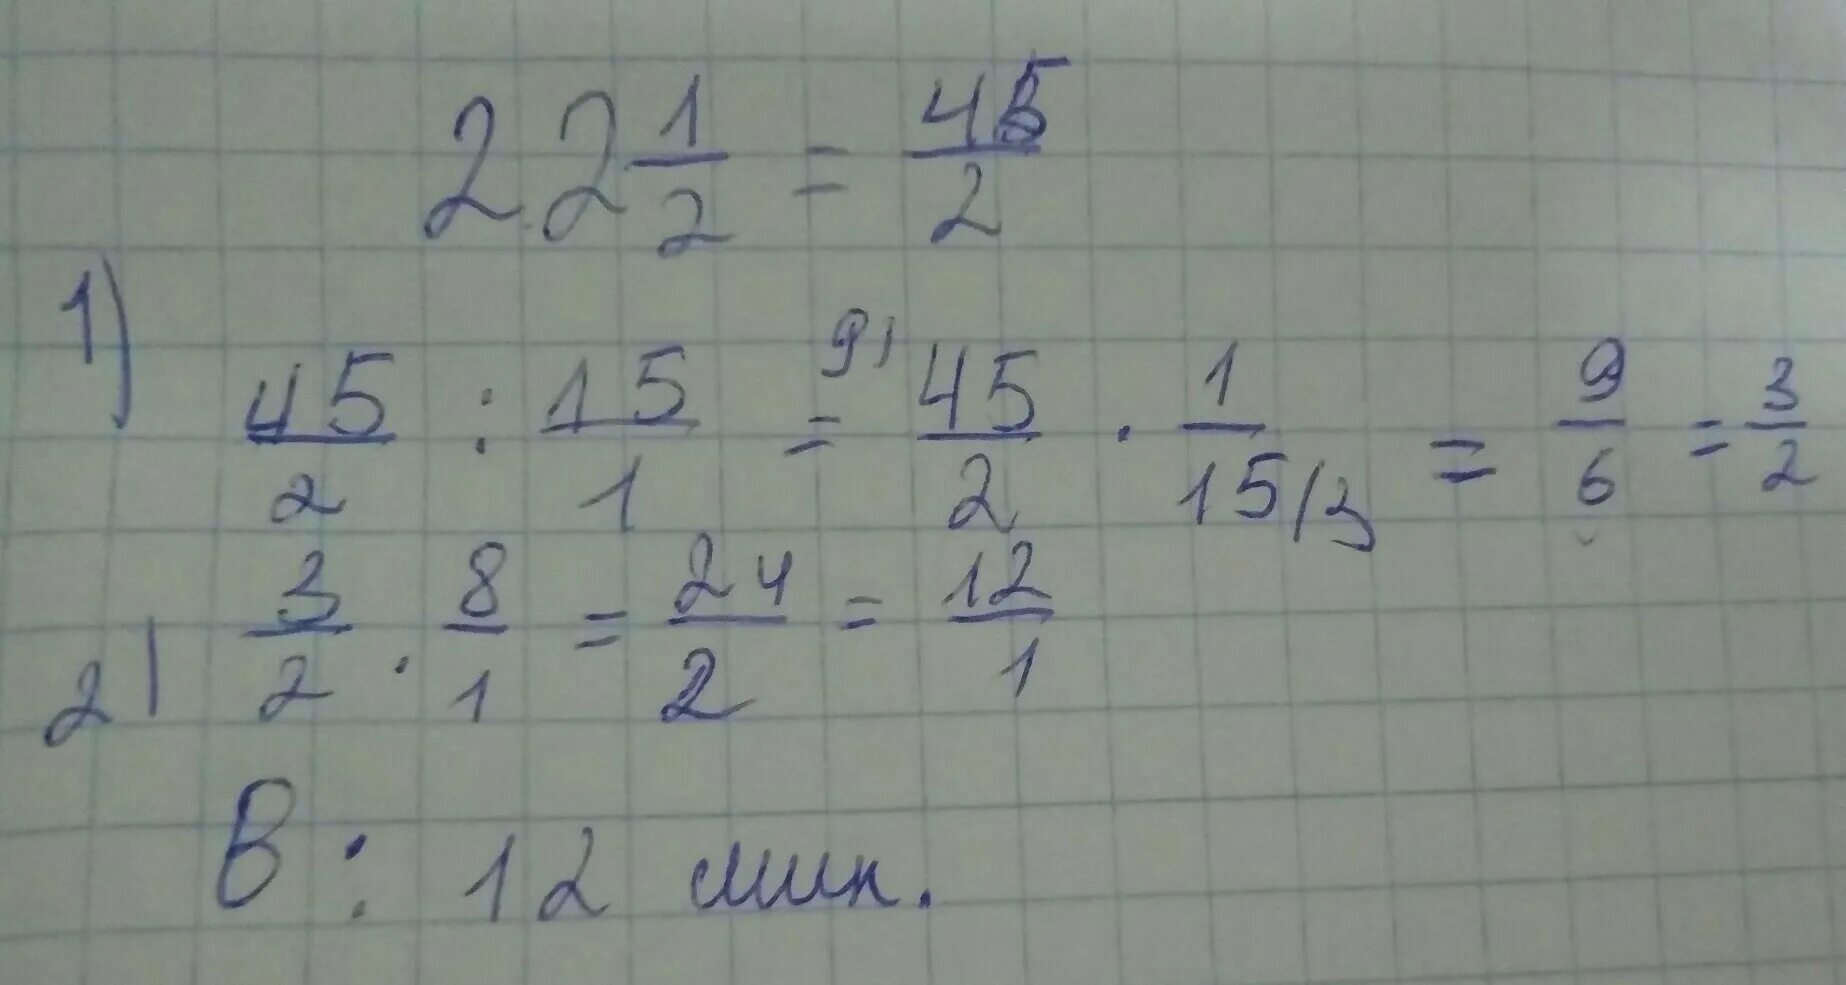 22 1/2 = 45/2
1) 45/2 : 15/1 = 9\ 45/2 · 1/15 /3 = 9/6 = 3/2
2) 3/2 · 8/1 = 24/2 = 12/1
В: 12 мин.